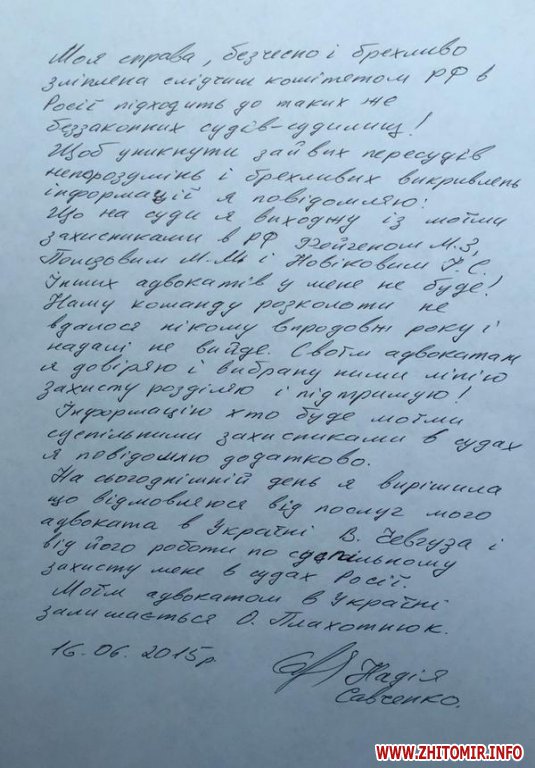 Моя справа, безчесно і брехливо
зліплена слідчим комітетом РФ в
Росії підходить до таких же
беззаконних судів-судилищ!
Щоб уникнути зайвих пересудів
непорозумінь і брехливих викривлень
інформації я повідомляю:
Що на суди я виходжу із моїми
захисниками в РФ Фейгеном М.З,
Полозовим М.М. і Новіковим І.С.
Інших адвокатів у мене не буде!
Нашу команду розколоти не
вдалося нікому впродовж року і
надалі не вийде. Своїм адвокатам
я довіряю і вибрану ними лінію
захисту розділяю і підтримую!
Інформацію хто буде моїми
суспільними захисниками в судах
я повідомлю додатково.
На сьогоднішній день я вирішила
що відмовляюся від послуг мого
адвоката в Україні В. Чевгуза і
від його роботи по суспільному
захисту мене в судах Росії.
Моїм адвокатом в Україні
залишається О. Плахотнюк.
16.06.2015р.
Надія
Савченко.
WWW.ZHITOMIR.INFO